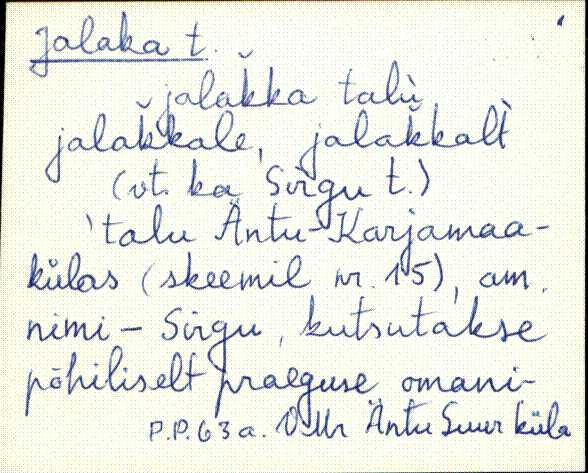 Jalaka t.
jalakka talù
jalakkale, jalakkalt
(vt. ka Sirgu t.)
'talu Äntu-Karjamaa-
külas (skeemil nr. 15), am.
nimi – Sirgu, kutsutakse
põhiliselt praeguse omani-
P.P. 63 a. V.Mr Äntu Suurküla